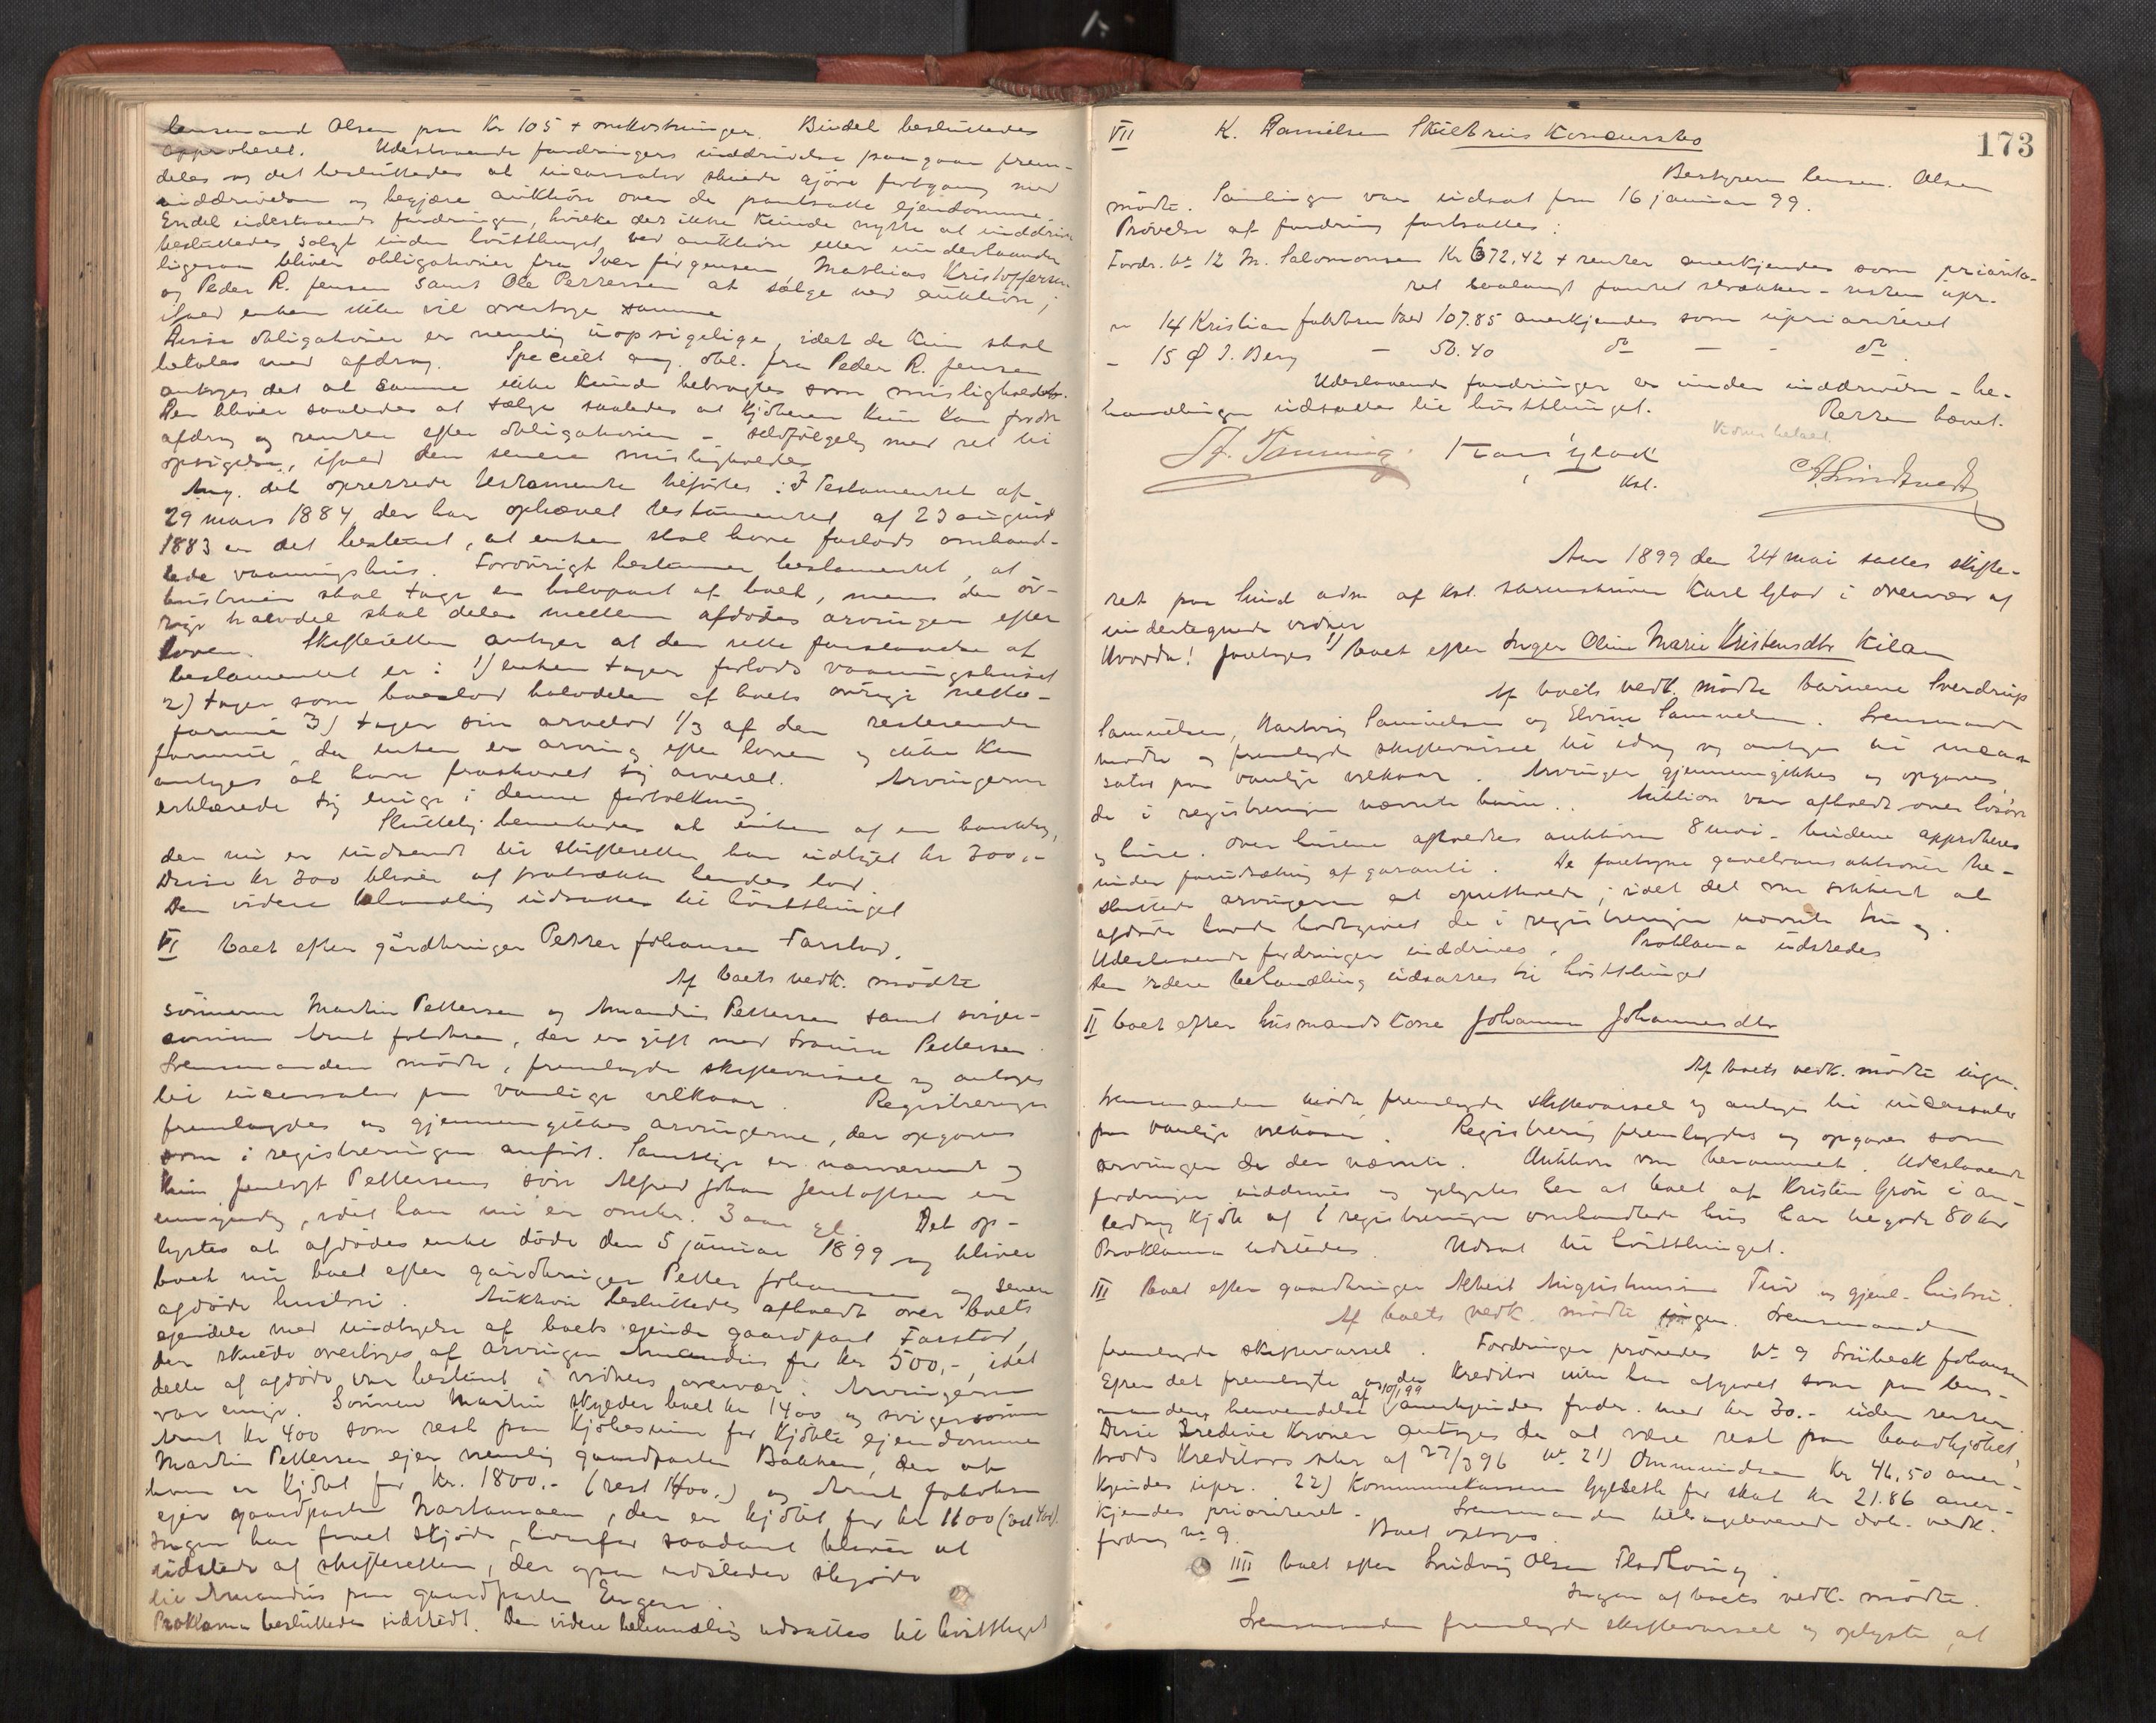 lensmand Olsen paa Kr 105 + omkostninger. Budet besluttedes
approberet. Udestaaende fordringers inddrivelse paagaar frem-
deles og det besluttedes at incassator skulde gjöre fortgang med
inddrivelsen og begjære auktion over de pantsatte ejendomme.
Endel udestaaende fordringer, hvilke det ikke kunde nytte at inddrive
besluttedes solgt inden høstthinget ved auktion eller underhaanden
ligesaa bliver obligationer fra Iver Jörgensen, Mathias Kristoffersen
og Peder R. Jensen samt Ole Pettersen at sælge ved auktion,
ifald enken ikke vil overtage samme
Disse obligationer er nemlig uopsigelige, idet de kun skal
betales med afdrag. Specielt ang. obl. fra Peder R. Jensen
antoges det at samme ikke kunde betragtes som misligholdt.
Den bliver saaledes at sælge saaledes at kjöberen kun kan fordre
afdrag og renter efter obligationen - selvfölgelig med ret til
opsigelse, ifald den senere misligholdes
Ang. det oprettede testamente tilförtes: I Testamentet af
29 mars 1884, der har ophævet testamentet af 23 august
1883 er det bestemt, at enken skal have forlods omhand-
lede vaaningshus. Forövrigt bestemmer testamentet, at
hustruen skal tage en halvpart af boet, mens den öv-
rige halvdel skal deles mellem afdödes arvinger efter
loven. Skifteretten antager at den rette forstaaelse af
testamentet er: 1) enken tager forlods vaaningshuset
2) tager som boeslod halvdelen af boets övrige netto-
formue 3) tager sin arvelod 1/3 af den resterende
formue, da enken er arving efter loven og ikke kan
antages at have fraskrevet sig arveret. Arvingerne
erklærede sig enige i denne fortolkning
Sluttelig bemerkedes at enken af en bankbog,
der nu er indsendt til skifteretten har udtaget kr 300,-
Disse kr 300 bliver at fratrække hendes lod.
Den videre behandling udsattes til hösttthinget
VI boet efter gårdbruger Petter Johansen Farstad.
Af boets vedk. mödte
sönnerne Martin Pettersen og Amandus Pettersen samt sviger-
sönnen Arnt Jakobsen, der er gift med Pettersen
Lensmanden mödte, fremlagde skiftevarsel og antoges
til incassator paa vanlige vilkaar. Registreringen
fremlagdes og gjennemgikkes arvingerne, der opgaves
som i registreringen anfört. Samtlige er nærværende og
kun Pettersens sön Alfred Johan Jentoftsen er
umyndig, idet han nu er omtr. 3 aar gl. Det op-
lystes at afdödes enke döde den 5 januar 1899 og bliver
boet nu boet efter gårdbruger Petter Johansen og senere
afdöde hustru. Auktion besluttedes afholdt over boets
ejendele med undtagelse af boets ejende gaardpart Farstad,
der skulde overtages af arvingen Amandus for kr 500,-, idet
dette af afdöde var bestemt i vidners overvær. Arvingerne
var enige. Sönnen Martin skylder boet kr 1400 og svigersönnen
Arnt kr 400 som rest paa kjöbesum for kjöbte ejendomme
Martin Pettersen ejer nemlig gaardparten Bakken, der af
ham er kjöbt for kr. 1800.- (rest 1400.) og Arnt Jakobsen
ejer gaardparten, der er kjöbt for kr 1100 (rest 400).
Ingen har faaet skjöde, hvorfor saadant bliver at
udstede af skifteretten, der ogsaa udsteder skjöde
til Amandus paa gaardparten Engen.
Proklama besluttedes udstedt. Den videre behandling udsattes til höstthinget
173
VII K. Danielsen Skilbrius Konkursbo
Bestyreren lensm. Olsen
mödte. Samlingen var udsat fra 16 januar 99.
Prövelse af fordring fortsattes:
Fordr. No 12 M. Salomonsen Kr 672,42 + renter anerkjendes som priorite-
ret saalangt pantet strækker - resten upr.
" 14 Kristian Jakobsen 107.85 anerkjendes som uprioriteret
- 15 J. Berg - 50.40 do - - do.
Udestaaende fordringer er under inddrivelse - be-
handlingen udsattes til höstthinget.
Retten hævet.
Vidner betalt.
Karl Glad
kst.
A. Lindtvedt
Aar 1899 den 24 mai sattes skifte-
ret paa Lund adm. af kst. sorenskriver Karl Glad i overvær af
undertegnede vidner
Hvorda! foretoges 1/ boet efter Inger Oline Marie Kristensdtr Kilan
Af boets vedk. mödte börnene Sverdrup
Samuelsen, Hartvig Samuelsen og Elvine Samuelsen. Lensmanden
mödte og fremlagde skiftevarsel til idag og antoges til incas-
sator paa vanlige vilkaar. Arvinger gjennemgikkes og opgaves
de i registreringen nævnte börn. Auktion var afholdt over lösöre
og huse. Over husene afholdtes auktion 8 mai - budene approberes
under forudsætning af garanti. De foretagne gavetransaktioner be-
sluttede arvingerne at opretholde, idet det var sikkert at
afdöde havde bortgivet de i registreringen nævnte ting.
Udestaaende fordringer inddrives. Proklama udstedes
Den videre behandling udsattes til höstthinget
II boet efter husmandskone Johanna Johannesdtr
Af boets vedk. mödte ingen.
Lensmanden mödte, fremlagde skiftevarsel og antoges til incassator
paa vanlige vilkaar. Registrering fremlagdes og opgaves som
arvinger de der nævnte. Auktion var berammet. Udestaaende
fordringer inddrives og oplystes her at boet af Kristen Grön i an-
ledning kjöb af i registreringen omhandlede hus har tilgode 80 kr
Proklama udstedes. Udsat til höstthinget.
III Boet efter gaardbruger Albert Augustinusen og gjenl. hustru.
Af boets vedk. mödte ingen. Lensmanden
fremlagde skiftevarsel. Fordringer prövedes No 9 Johansen
Efter det fremlagte og da kreditor ikke har afgivet svar paa lens-
mandens henvendelse af 10/1 99 anerkjendes fordr. med kr 30.- uden renter.
Disse tredive kroner antoges da at være rest paa baadkjöbet,
trods kreditors skr af 27/3 96 No 21) Ommundsen kr 46,50 aner-
kjendes upr. 22) Kommunekassen for skat kr 21.86 aner-
kjendes prioriteret. Lensmanden tilbageleverede dok. vedk.
fordring No 9. Boet optoges.
IIII boet efter Ludvig Olsen Flodhaug
Ingen af boets vedk. mödte.
Lensmanden fremlagde skiftevarsel og oplyste, at